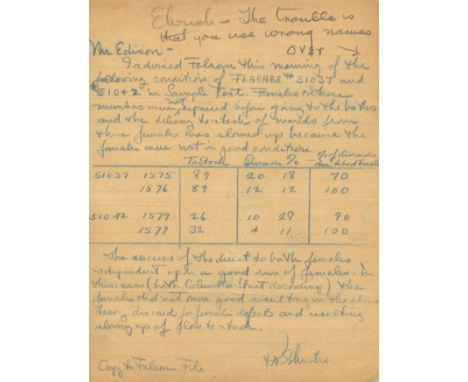 The trouble is
that you use wrong names
over
Mr Edison -
I advised Folsom this morning of the
following condition of FLASHES # 51037 and
51042 in Sample Port. Females on these
numbers were not repaired before going to the baths
and the delivery to stock of moulds from
these females was slowed up because the
females were not in good conditions
To Stock Discards % % of discards
51037 1575 89 20 18 70
1576 89 12 12 100
51042 1579 26 10 28 90
1577 32 4 11 100
The success of the direct to bath females
is dependent upon a good run of females. In
this case (both Columbia Street Recording) the
females did not run good resulting in the above
heavy discard for female defects and resulting
slowing up of flow to stock.
Copy to Folsom, File